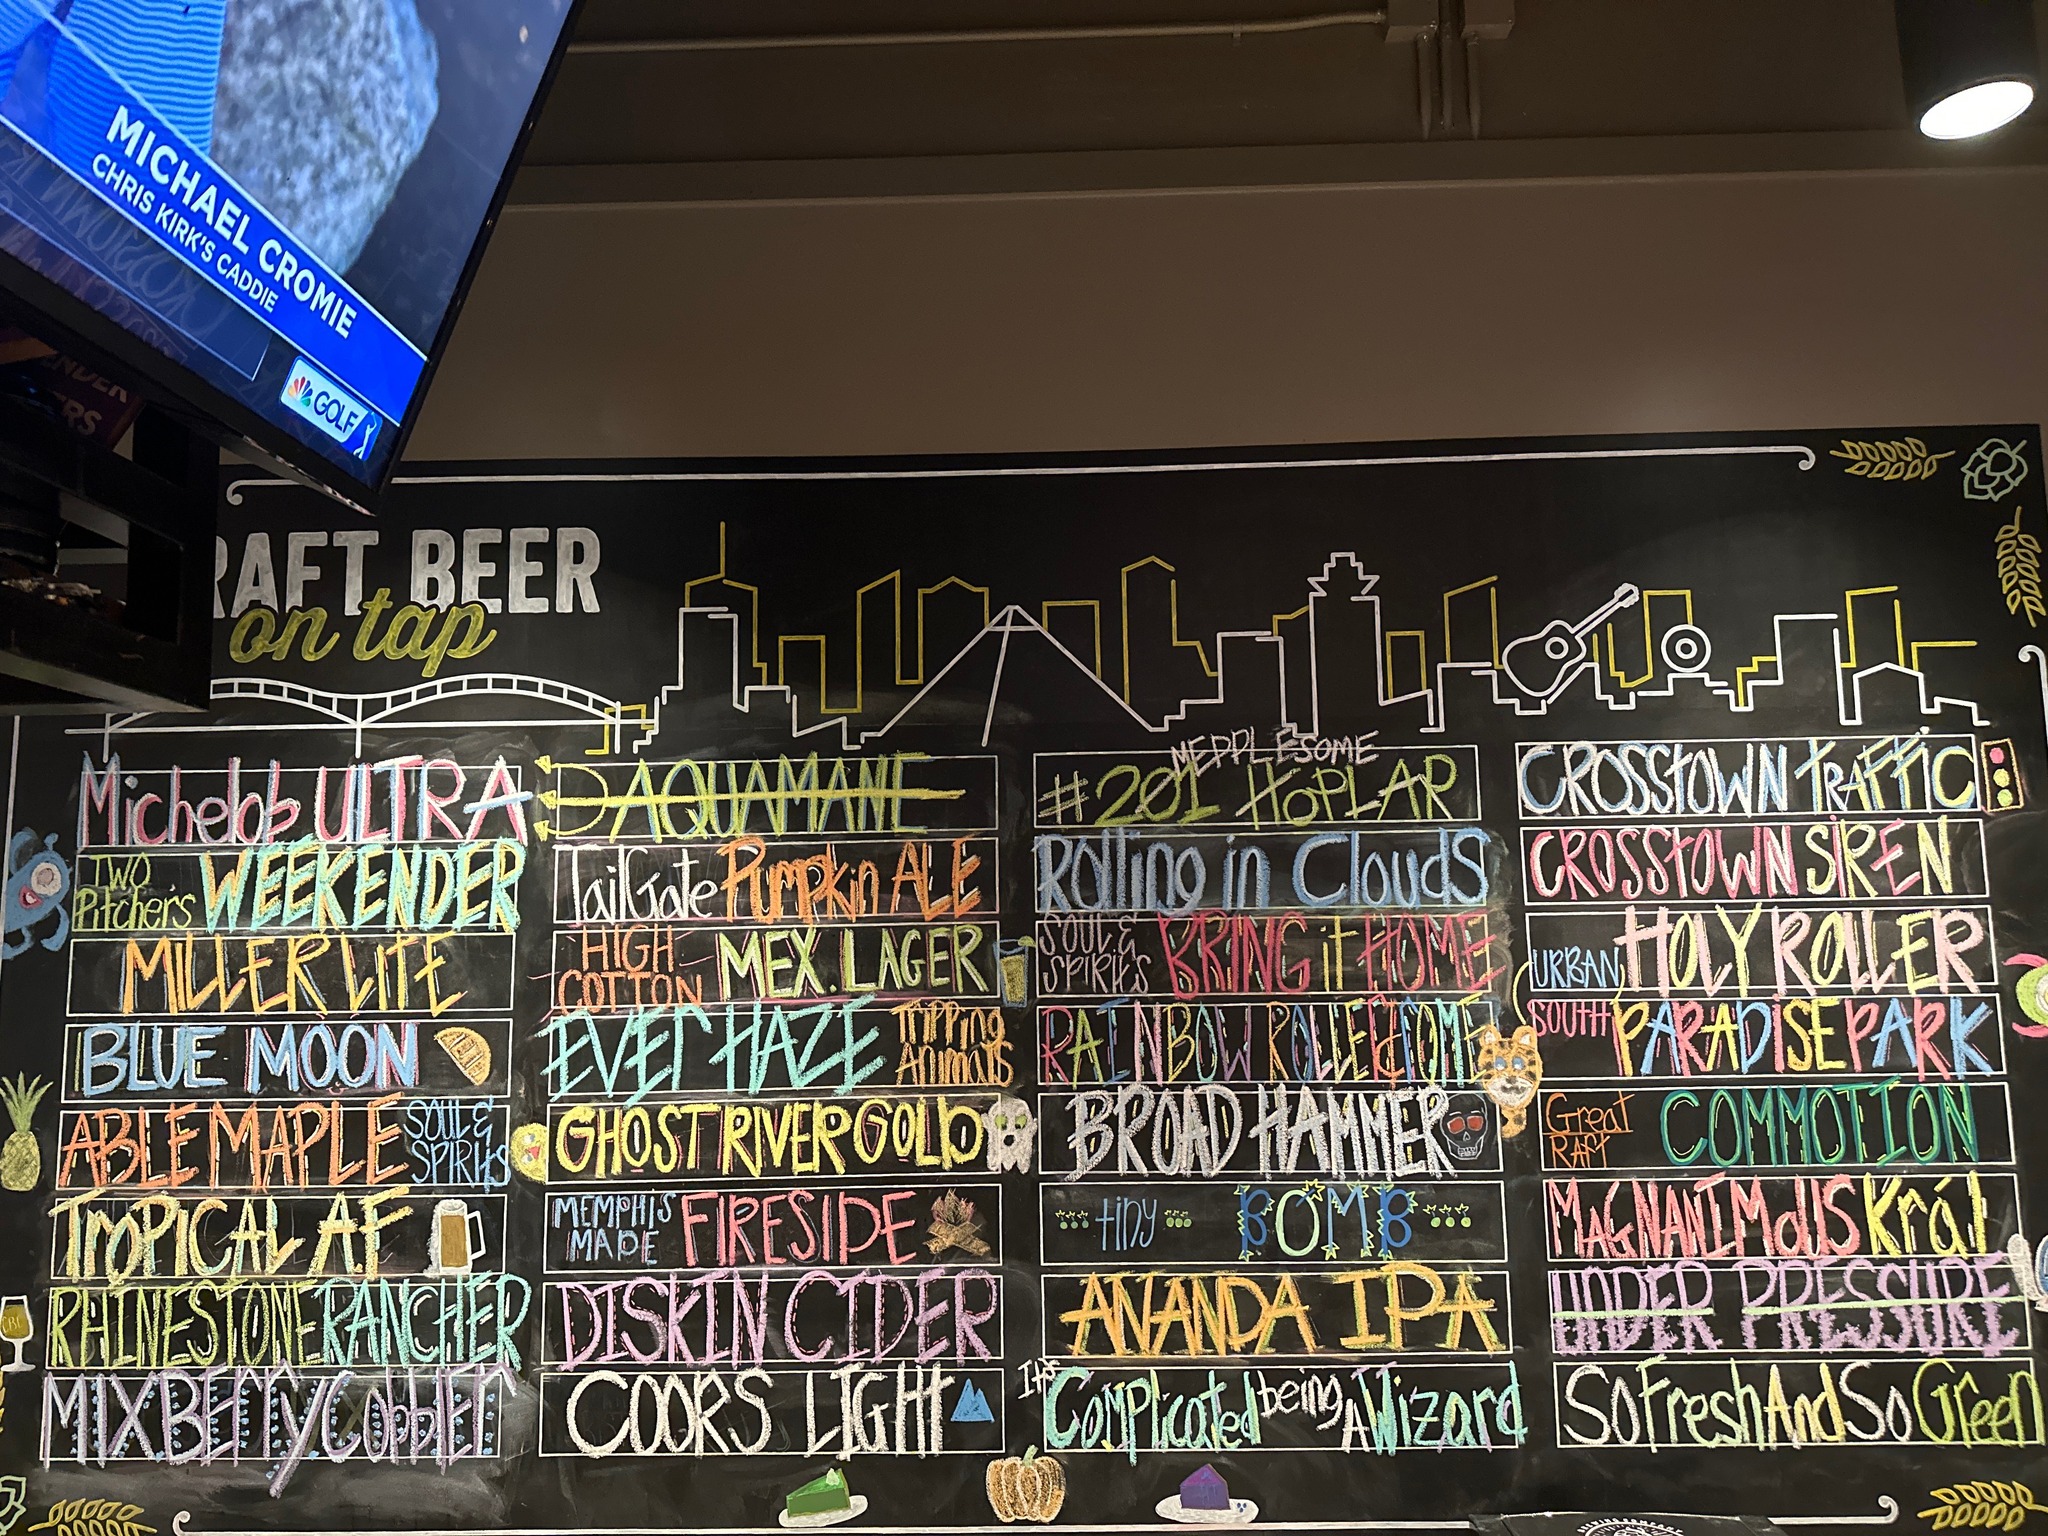 MICHAEL CROMIE
CHRIS KIRK'S CADDIE
GOLF
RAFT BEER
on tap
Michelob ULTRA
TWO Pitcher's WEEKENDER
MILLER LITE
BLUE MOON
ABLE MAPLE SOUL & SPIRITS
TROPICAL AF
RHINESTONE RANCHER
MIXBERRY CobblER
AQUAMANE
TailGate Pumpkin ALE
HIGH COTTON MEX. LAGER
EVER HAZE Tripping Animals
GHOST RIVER GOLD
MEMPHIS MADE FIRESIDE
DISKIN CIDER
COORS LIGHT
MEDDLESOME
#201 HOPLAR
Rolling in Clouds
SOUL & SPIRITS BRING it HOME
RAINBOW ROLLERCOME
BROAD HAMMER
tiny BOMB
ANANDA IPA
It's Complicated being A Wizard
CROSSTOWN TRAFFIC
CROSSTOWN SIREN
URBAN HOLY ROLLER
SOUTH PARADISE PARK
Great RAFT COMMOTION
MAGNANIMOUS Král
UNDER PRESSURE
So Fresh And So Green